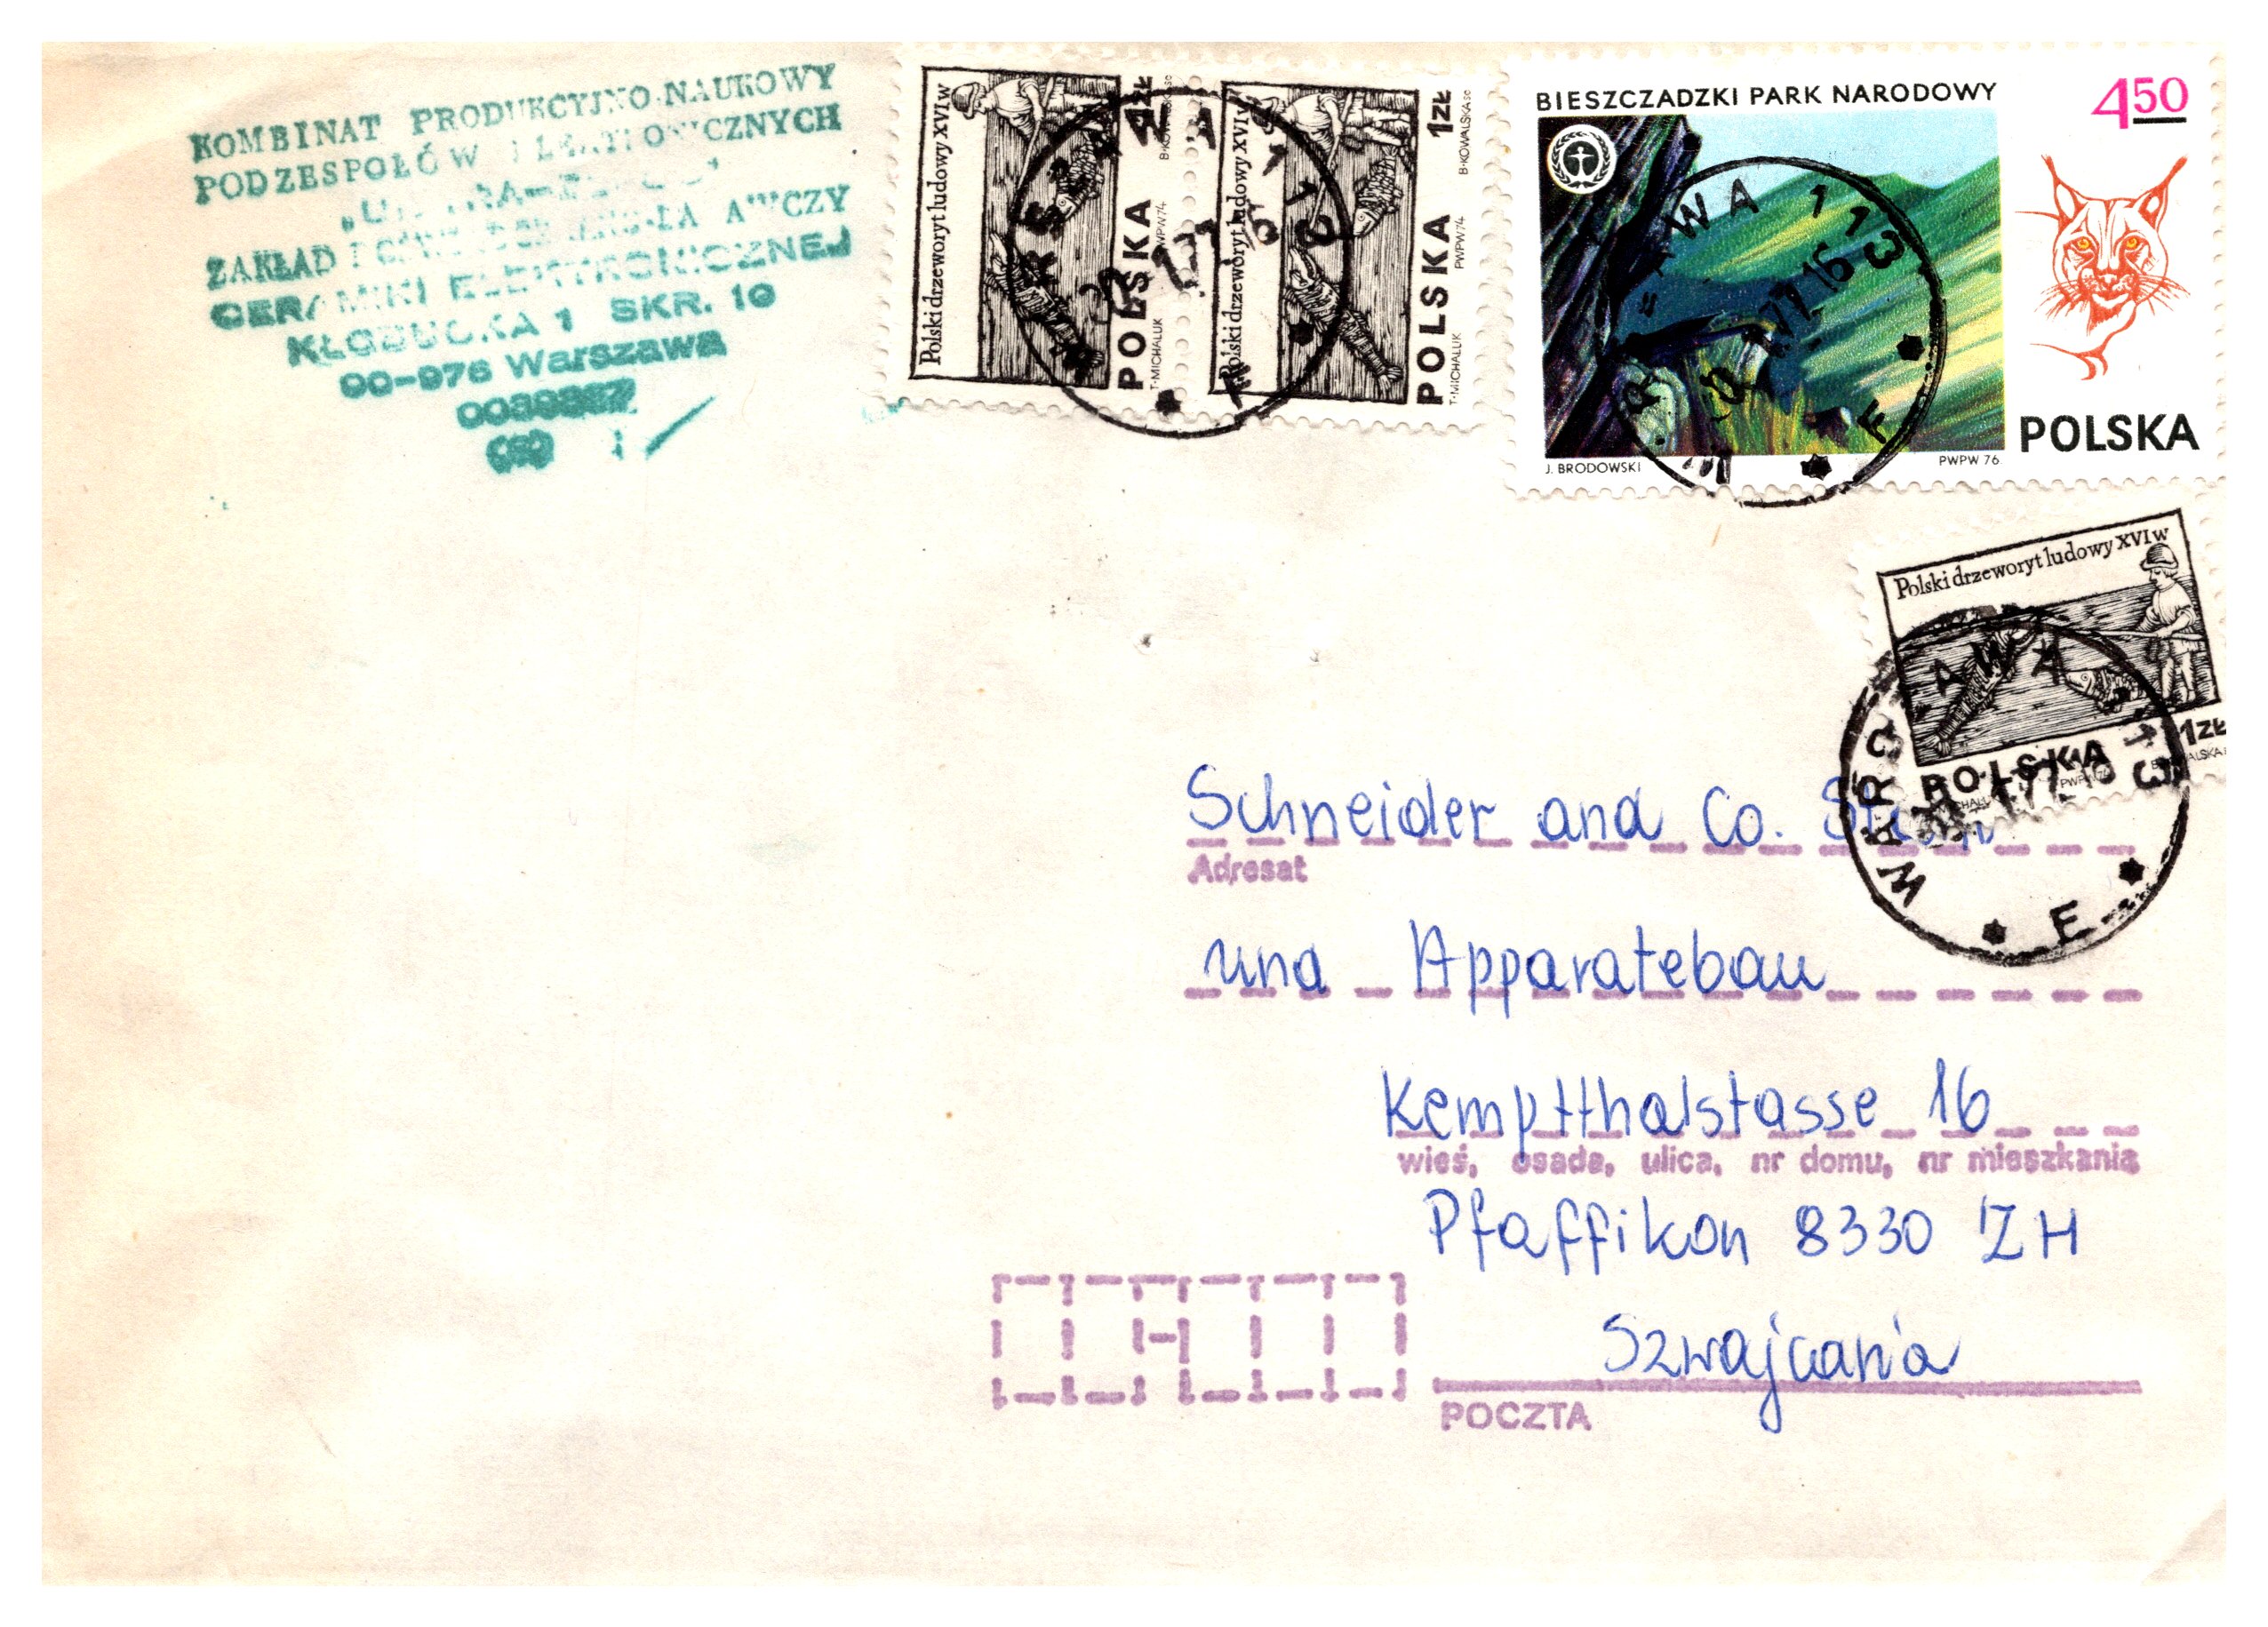 KOMBINAT PRODUKCYJNO-NAUKOWY
PODZESPOŁÓW
ZAKŁAD
CERAMIKI ELEKTRONICZNEJ
KŁOBUCKA 1 SKR. 10
00-976 Warszawa
Polski drzeworyt ludowy XVI w
1ZŁ
POLSKA
T·MICHALUK PWPW74 B·KOWALSKA SC
Polski drzeworyt ludowy XVI w
1ZŁ
POLSKA
T·MICHALUK PWPW74 B·KOWALSKA SC
BIESZCZADZKI PARK NARODOWY
450
POLSKA
J. BRODOWSKI PWPW 76
WA 113
77 16
F
Polski drzeworyt ludowy XVI w
1ZŁ
POLSKA
WARSZAWA 113
E
Schneider and Co.
Adresat
und Apparatebau
Kemptthalstasse 16
wieś, osada, ulica, nr domu, nr mieszkania
Pfaffikon 8330 ZH
Szwajcaria
POCZTA